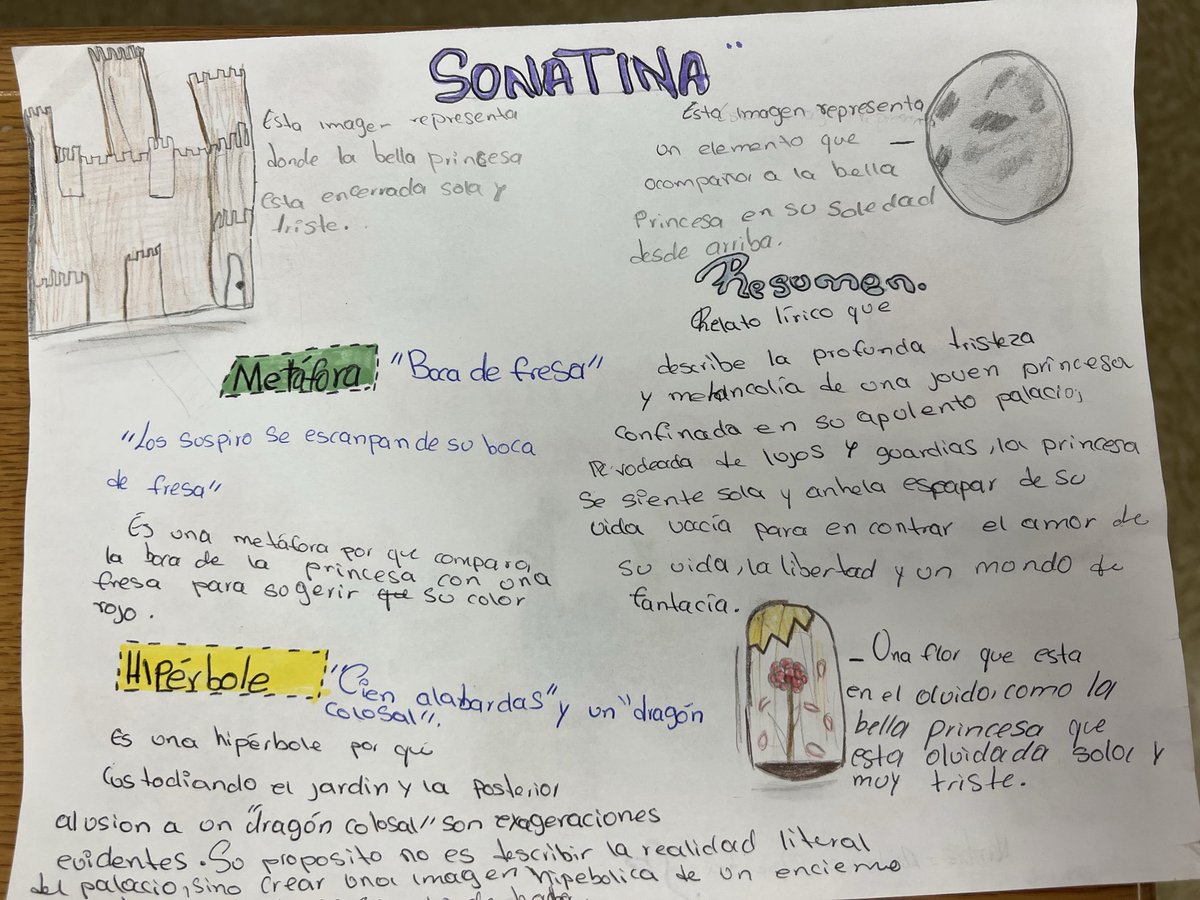 SONATINA"
Esta imagen representa
donde la bella princesa
esta encerrada sola y
triste.
Esta imagen representa
un elemento que —
acompaña a la bella
Princesa en su soledad
desde arriba.
Resumen.
Relato lírico que
describe la profunda tristeza
y melancolía de una joven princesa
confinada en su apulento palacio,
rodeada de lujos y guardias, la princesa
se siente sola y anhela espapar de su
vida vacía para en contrar el amor de
su vida, la libertad y un mondo de
fantacía.
Metáfora "Boca de fresa"
"Los sospiro se escanpan de su boca
de fresa"
Es una metáfora por que compara,
la boca de la princesa con una
fresa para sogerir que su color
rojo.
Hipérbole "Cien alabardas" y un "dragón
colosal".
Es una hipérbole por qué
Custodiando el jardin y la posterior
alusion a un "dragón colosal" son exageraciones
evidentes. Su proposito no es describir la realidad literal
del palacio, sino crear una imagen hipebolica de un encierro
— Una flor que esta
en el olvido, como la
bella princesa que
esta olvidada sola y
muy triste.